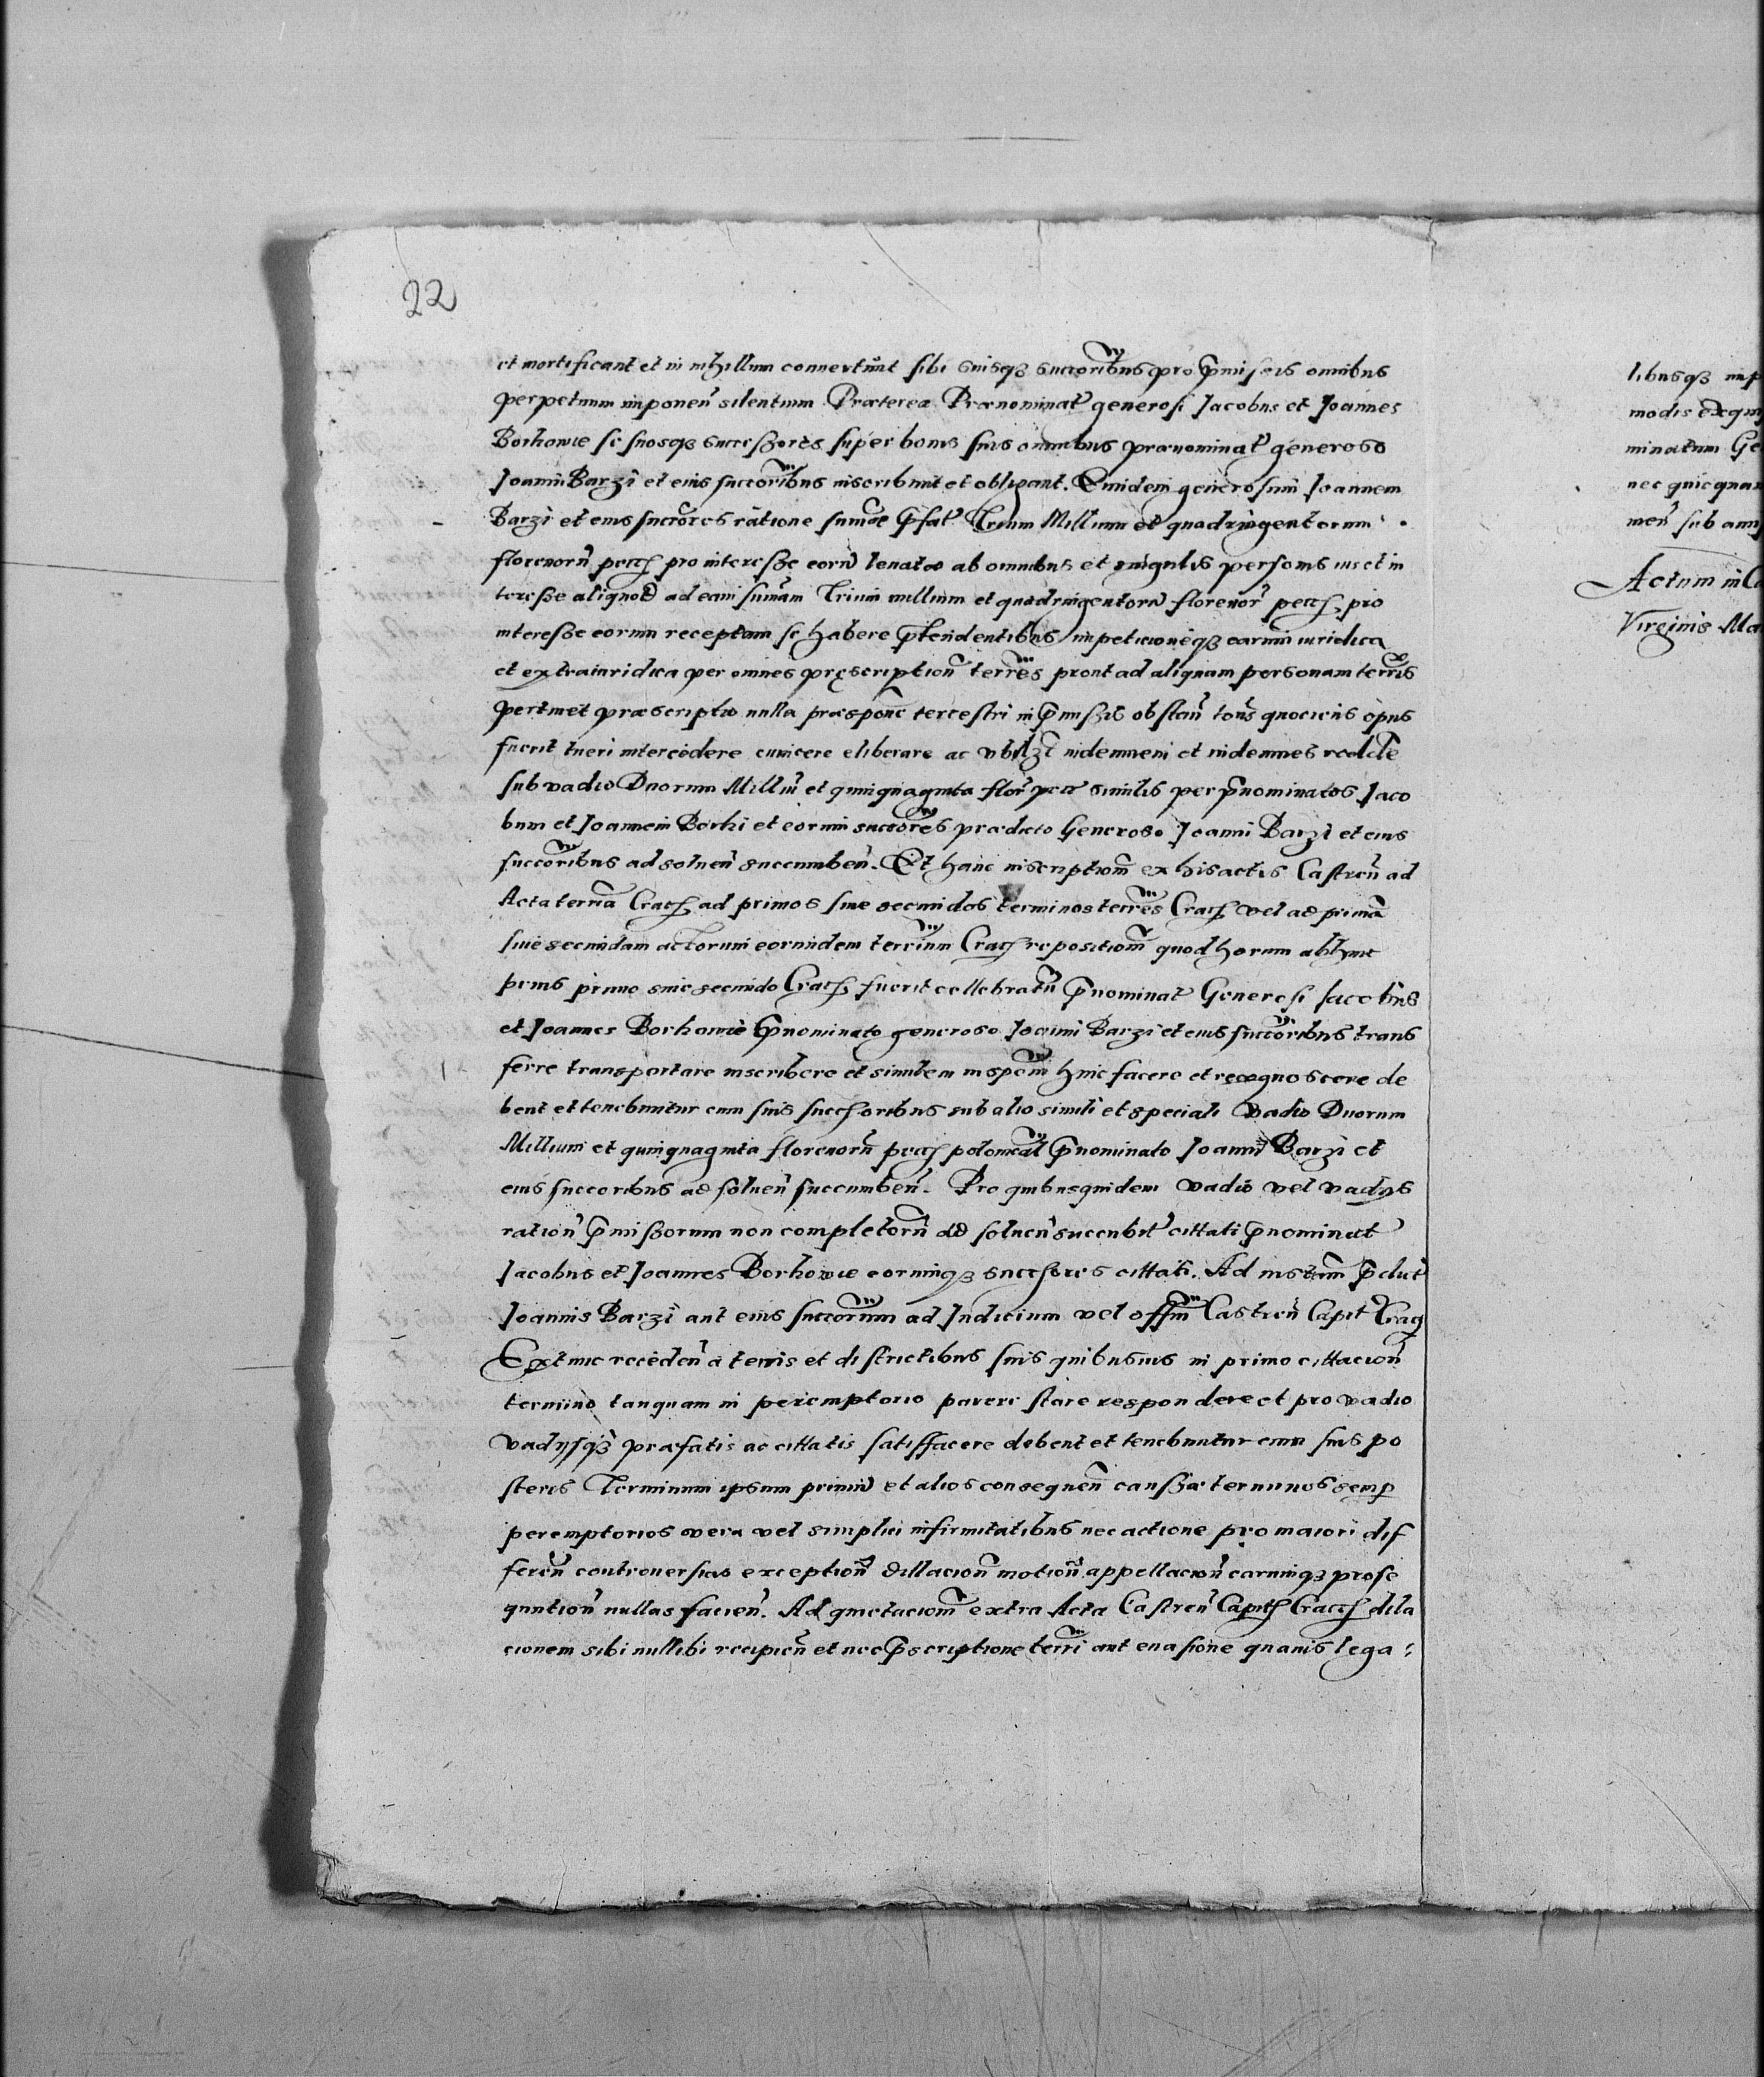 22
et mortificant et in nihillum conuertunt sibi suisqꝫ succoribus pro p̄missis omnibus
perpetuum imponen̄ silentium Præterea Prænominat̄ generosi Jacobus et Joannes
Borkowie se suosqꝫ successores super bonis suis omnibus prænominat̄ generoso
Joanni Barzi et eius succoribus inscribunt et obligant. Eundem generosum Joannem
Barzi et eius succores ratione summæ p̄fat̄ Trium Millium et quadringentorum
florenorū pecc̄ pro interesse eorū leuatæ ab omnibus et singulis personis ius et in
teresse aliquod ad eam sumam Trium millium et quadringentorū florenor̄ pecc̄ pro
interesse eorum receptam se habere p̄tendentibus impeticioneqꝫ earum iuridica
et extraiuridica per omnes præscription̄ terr̄es prout ad aliquam personam terr̄is
pertinet præscriptio nulla præspone terrestri in p̄missis obstan̄ tot̄ies quociens opus
fuerit tueri intercedere euincere eliberare ac vbilzt̄ indemnem et indemnes reddere
sub vadio Duorum Milliū et quinquaginta flor̄ pecc similis per p̄nominatos Jaco
bum et Joannem Borki et eorum succores prædicto Generoso Joanni Barzi et eius
succoribus ad soluen̄ succumben̄. Et hanc inscriptiom̄ ex his actis Castren̄ ad
Acta terr̄ia Crac̄ ad primos siue secundos terminos terr̄es Crac̄ vel ad primā
siue secundam actorum eorundem terr̄ium Crac̄ repositiom̄ quod horum abhinc
prius primo siue secundo Crac̄ fuerit cellebratū p̄nominat̄ Generosi Jacobus
et Joannes Borkowie p̄nominato generoso Joanni Barzi et eius succoribus trans
ferre transportare inscribere et similem inspem̄ huic facere et recognoscere de
bent et tenebuntur cum suis successoribus sub alio simili et speciali Vadio Duorum
Millium et quinquaginta florenorū pecc̄ polonical̄ p̄nominato Joanni Barzi et
eius succoribus ad soluen̄ succumben̄. Pro quibusquidem vadio vel vadijs
ration̄ p̄missorum non completorū ad soluen̄ succubit̄ cittati p̄nominat̄
Jacobus et Joannes Borkowie eorumqꝫ successores cittati. Ad instam̄ p̄dict̄
Joannis Barzi aut eius succorum ad Judicium vel offm̄ Castren̄ Capit̄ Crac̄
Extunc receden̄ a terris et districtibus suis quibusuis in primo cittacion̄
termino tanquam in peremptorio parere stare respondere et pro vadio
vadijsqꝫ præfatis ac cittatis satisfacere debent et tenebuntur cum suis po
steris Terminum ipsum primū et alios consequen̄ causæ terminos semp̄
peremptorios vera vel simplici infirmitatibus nec actione pro maiori dif
feren̄ controuersias exception̄ dillacion̄ motion̄ appellacion̄ earumqꝫ prose
qution̄ nullas facien̄. Ad quietaciom̄ extra Acta Castren̄ Capit̄ Crac̄ dila
cionem sibi nullibi recipien̄ et nec p̄scriptione terr̄i aut euasione quauis lega:
libusqꝫ imp
modis exqui
minatum Ge
nec quicquam
men̄ sub ann
Actum in Ca
Virginis Ma